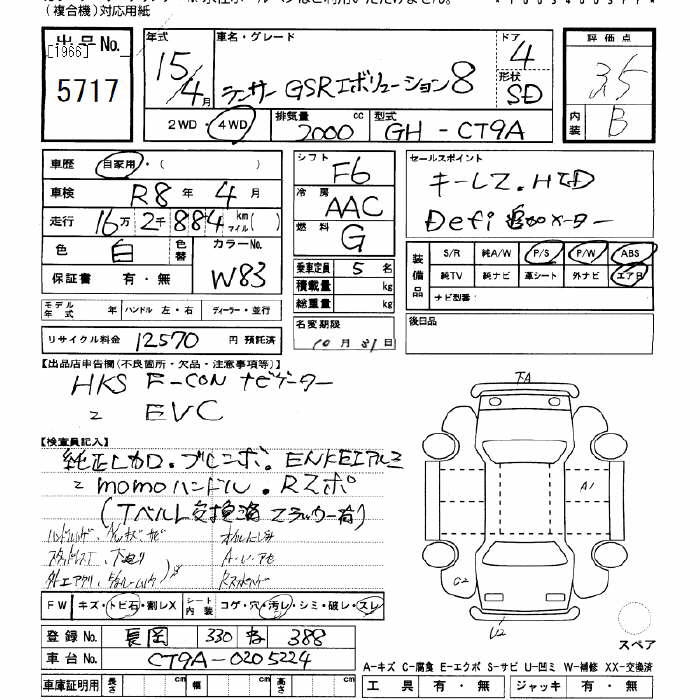 (複合機)対応用紙
出品No.
[1966]
5717
年式
15/4月
車名・グレード
ランサー GSRエボリューション8
ドア
4
形状
SD
2WD・4WD
排気量
2000 cc
型式
GH-CT9A
評価点
3.5
内装
B
車歴 自家用・( )
車検 R8年 4月
走行 16万 2千 884 km マイル ( )
色 白 色替
カラーNo.
W83
保証書 有・無
シフト
F6
冷房
AAC
燃料
G
乗車定員 5 名
積載量 kg
総重量 kg
セールスポイント
キーレス. HID
Defi 追加メーター
装備品
S/R 純A/W P/S P/W ABS
純TV 純ナビ 革シート 外ナビ エアB
ナビ型番:
モデル年式 年 ハンドル 左・右 ディーラー・並行
リサイクル料金 12570 円 預託済
名変期限
10月 31日
後日品
【出品店申告欄(不良箇所・欠品・注意事項等)】
HKS F-CON
EVC
【検査員記入】
純正レカロ・ブレンボ. ENKEIアルミ
momoハンドル. Rスポ
(Tベルト交換済 ステッカー有)
下A
A1
G2
U2
FW キズ・トビ石・割レX
シート内装 コゲ・穴・汚レ・シミ・破レ・スレ
登録No. 長岡 330 388
車台No. CT9A-0205224
スペア
A-キズ C-腐食 E-エクボ S-サビ U-凹ミ W-補修 XX-交換済
車庫証明用 長さ cm 幅 cm 高さ cm
工具 有・無 ジャッキ 有・無